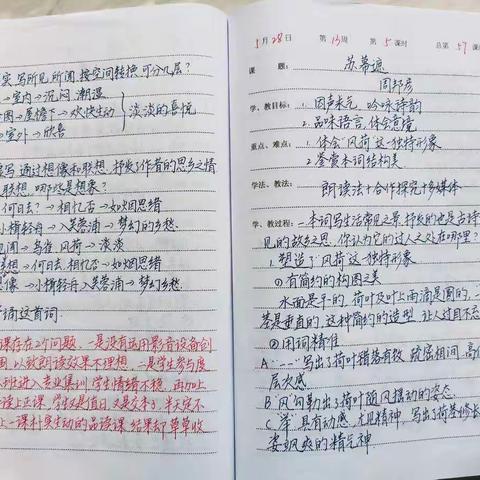 实.写所见所闻.按空间转换,可分几层?
→室内→沉闷.潮湿
图→屋檐下→欢快生动
→室外→欣喜
淡淡的喜悦
写.通过想像和联想,抒发了作者的思乡之情
联想.哪些是想象?
何日去?→相忆否→如烟思绪
小楫轻舟→入芙蓉浦→梦幻的乡愁.
见闻→鸟雀.风荷→淡淡
→何日去.相忆否→如烟思绪
像→小楫轻舟→入芙蓉浦→梦幻乡愁.
诵这首词.
课存在2个问题.一是没有运用影音设备创
以致朗读效果不理想.二是学生参与度
进入专业集训,学生情绪不稳,再加上
上正课,学生
上一课朴实生动的品读课.结果却草草收
5月28日 第13周 第5课时 总第57课时
课题: 苏幕遮
周邦彦
学、教目标: 1. 因声求气 吟咏诗韵
2. 品味语言.体会意境
重点、难点: 1. 体会"风荷"这一独特形象
2. 鉴赏本词结构美
学法、教法: 朗读法+合作探究+多媒体
学、教过程: 一.本词写生活常见之景.抒发的也是古诗
见的故乡之思.你认为它的过人之处在哪里?
1. 塑造了"风荷"这一独特形象
①有简约的构图之美
水面是平的,荷叶及叶上雨滴是圆的,
茎是垂直的,这种简约的造型,让人过目不忘
②用词精准
A. 写出了荷叶错落有致,疏密相间,高低
层次感
B. 风 勾勒出了荷叶随风摆动的姿态.
C. "举"具有动感,尤见精神,写出了荷茎修长
姿,飒爽的精气神